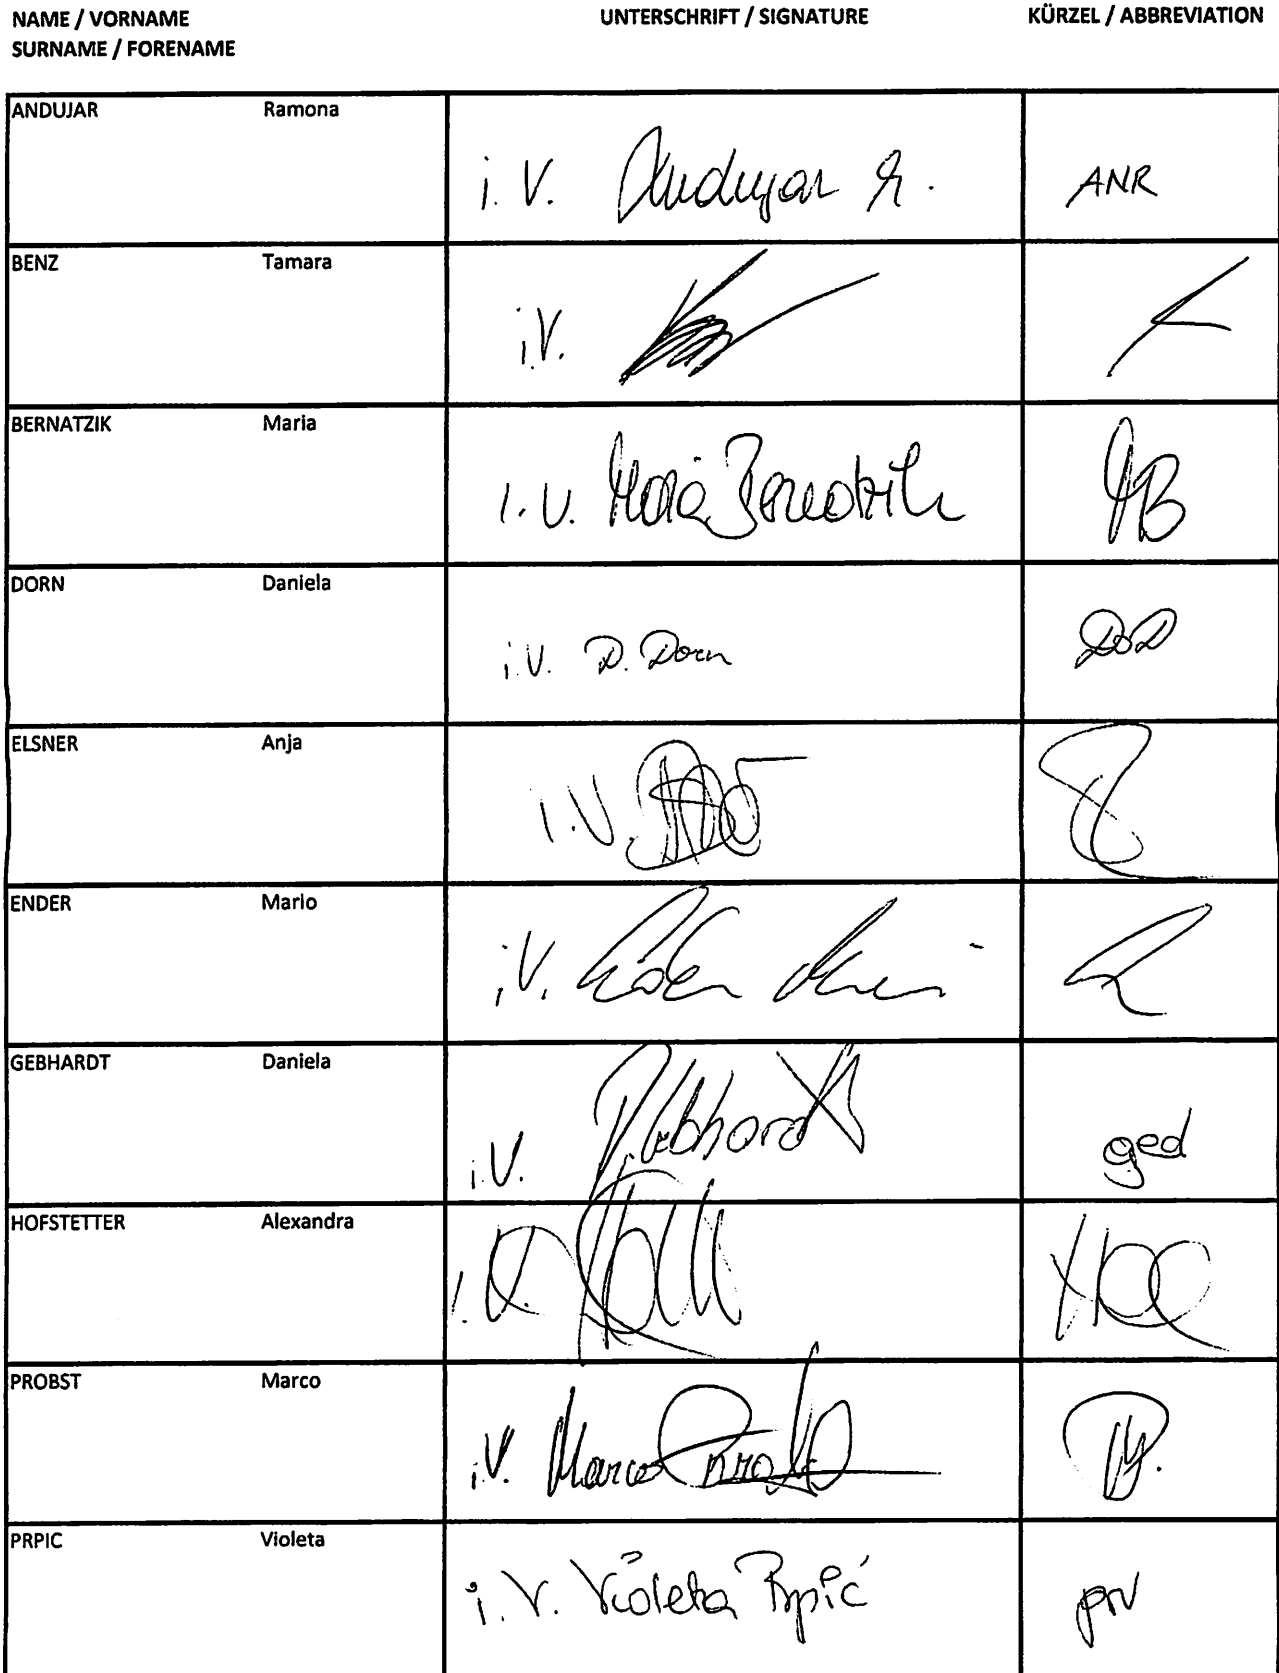 NAME / VORNAME UNTERSCHRIFT / SIGNATURE KÜRZEL / ABBREVIATION
SURNAME / FORENAME
ANDUJAR Ramona
i. V. Andujar R. ANR
BENZ Tamara
i.V.
BERNATZIK Maria
i. V. Maria Bernatzik MB
DORN Daniela
i.V. D. Dorn DoD
ELSNER Anja
i.V.
ENDER Mario
i.V. Ender Mario
GEBHARDT Daniela
i.V. D. Gebhardt ged
HOFSTETTER Alexandra
i.V.
PROBST Marco
i.V. Marco Probst
PRPIC Violeta
i. V. Violeta Prpić prv